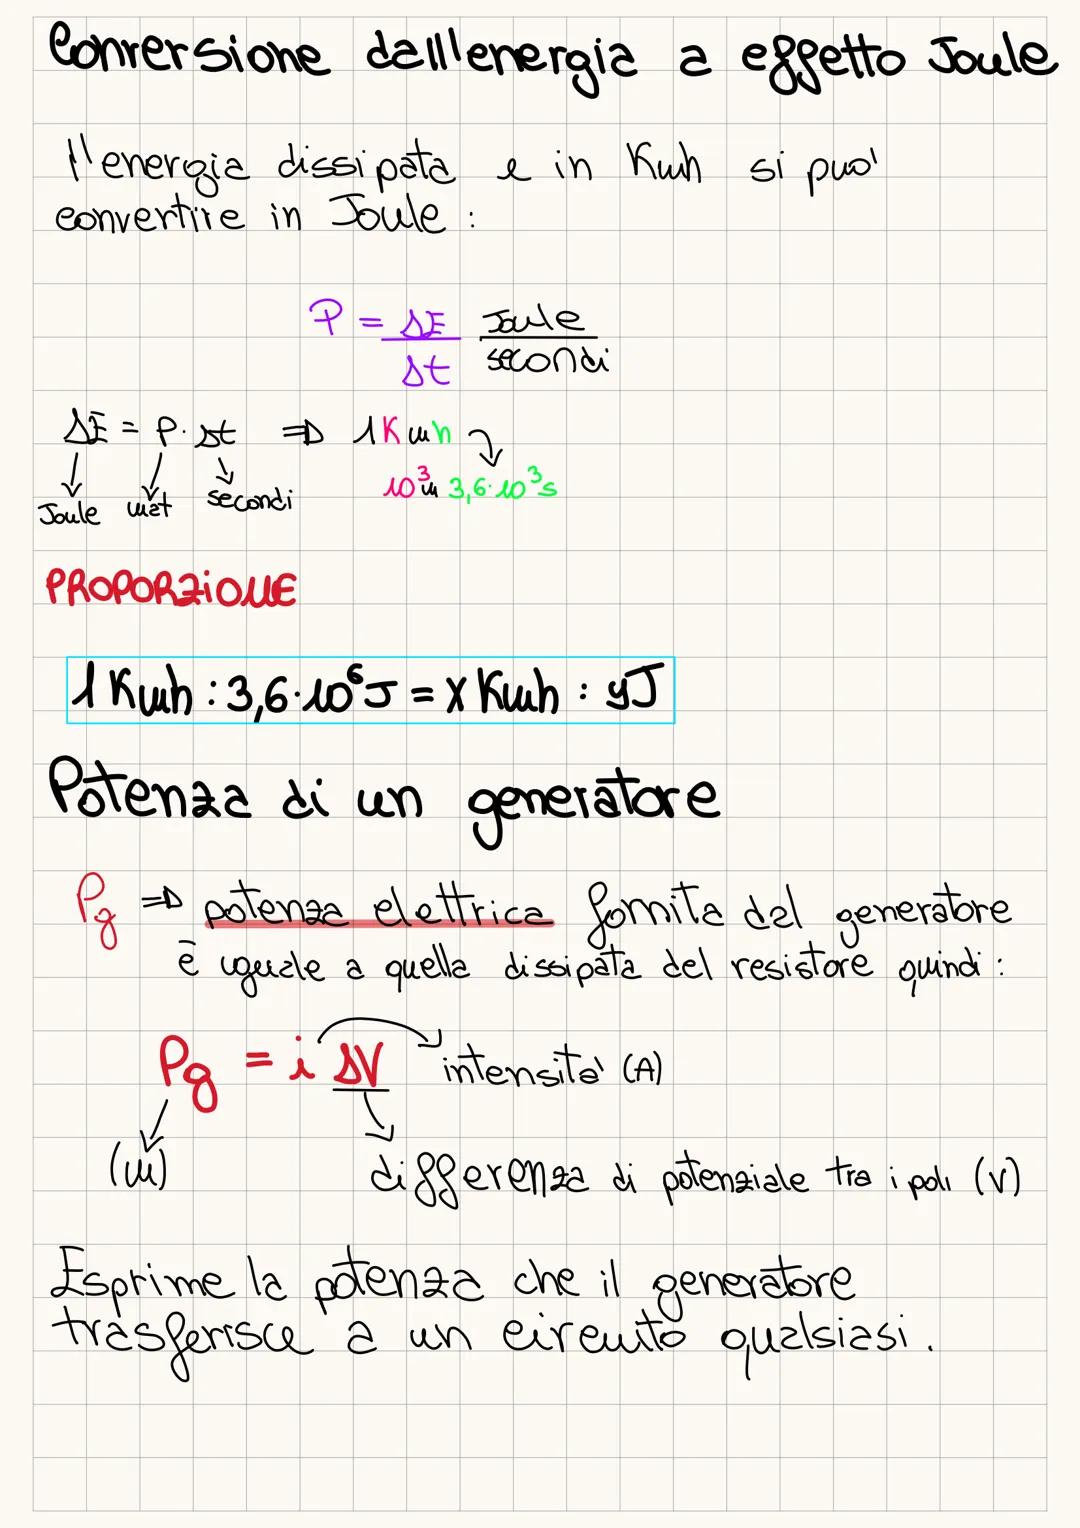 Conversione dall'energia a effetto Joule
l'energia dissipata e in Kwh si può'
convertire in Joule :
P = ΔE Joule
Δt secondi
ΔE = P · Δt ⇒ 1 Kwh
10³ w 3,6·10³ s
Joule wat secondi
PROPORZIONE
1 Kwh : 3,6·10⁶ J = x Kwh : yJ
Potenza di un generatore
Pg ⇒ potenza elettrica fornita dal generatore
è uguale a quella dissipata del resistore quindi :
Pg = i ΔV intensita' (A)
(w) differenza di potenziale tra i poli (V)
Esprime la potenza che il generatore
trasferisce a un circuito qualsiasi.